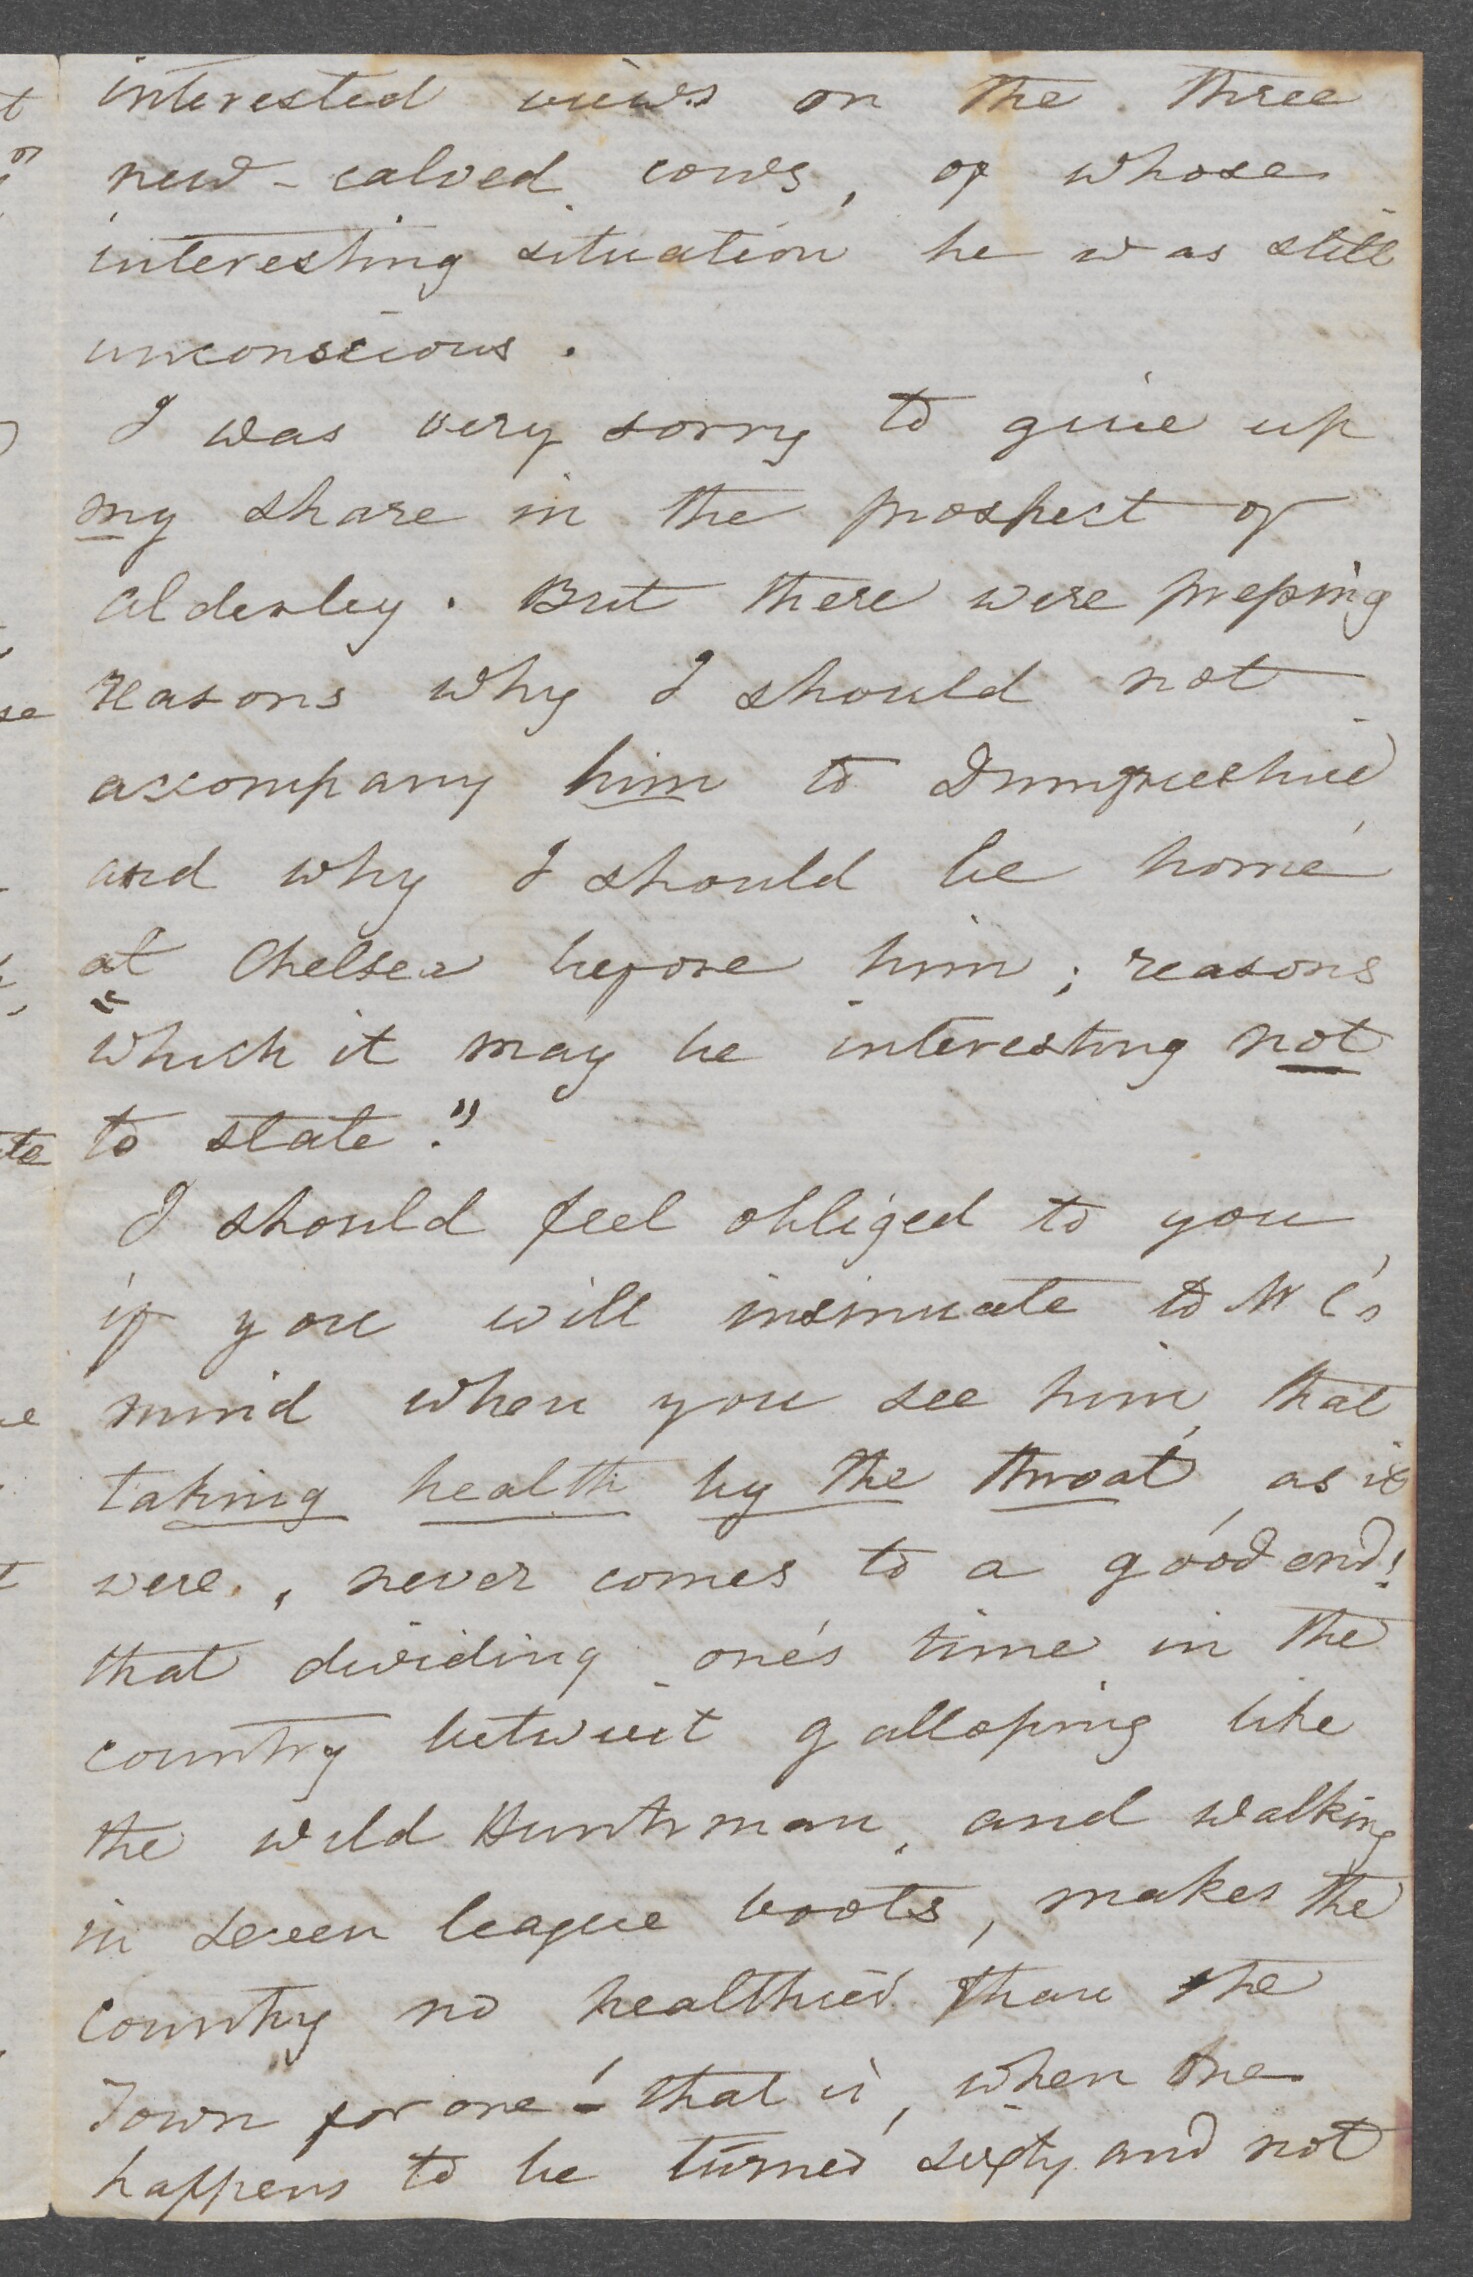 interested views on the three
new-calved cows, of whose
interesting situation he was still
unconscious.
I was very sorry to give up
my share in the prospect of
Alderley. But there were preping
reasons why I should not
accompany him to Dumfriesshire
and why I should be home
at Chelsea before him; reasons
"which it may be interesting not
to state."
I should feel obliged to you,
if you will insinuate to Mr C's
mind when you see him, that
taking health by the throat, as it
were, never comes to a good end!
that dividing one's time in the
country betwixt galloping like
the wild Huntsman, and walking
in seven league boots, makes the
country no healthier than the
Town for one!- that is, when one
happens to be turned sixty and not